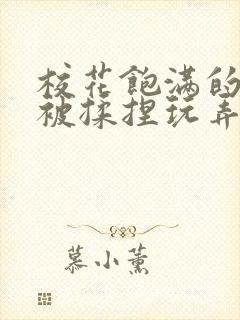 校花飽满的
被揉捏玩弄
慕小薰